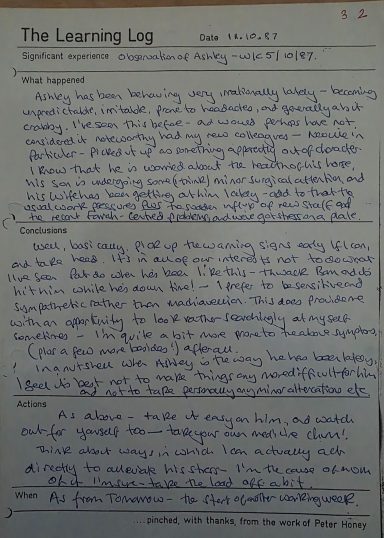 3 2
The Learning Log Date 11.10.87
Significant experience Observation of Ashley - w/c 5/10/87.
What happened
Ashley has been behaving very irrationally lately - becoming
unpredictable, irritable, prone to headaches, and generally a bit
crabby. I've seen this before - and would perhaps have not
considered it noteworthy had my new colleagues - in
particular - picked it up as something apparently out of character.
I know that he is worried about the health of his horse,
his son is undergoing some (I think) minor surgical attention, and
his wife has been getting at him lately - add to that the
usual work pressures plus the sudden influx of new staff and
the recent centred problems, and we've got stress on a plate.
Conclusions
Well, basically, pick up the warning signs early if I can,
and take heed. It's in all of our interests not to do what
I've seen Pat do when he's been like this - thwack Bam and
hit him while he's down time! - I prefer to be sensitive and
sympathetic rather than machiavellian. This does provide me
with an opportunity to look rather searchingly at myself
sometimes - I'm quite a bit more prone to the above symptoms,
(plus a few more besides!) after all.
In a nutshell when Ashley is the way he has been lately,
I feel it's best not to make things any more difficult for him
and not to take personally any minor altercations etc
Actions
As above - take it easy on him, and watch
out for yourself too - take your own medicine chum!
Think about ways in which I can actually act
directly to alleviate his stress - I'm the cause of
of it I'm sure - take the load off a bit.
When As from Tomorrow - the start of another working week.
....pinched, with thanks, from the work of Peter Honey